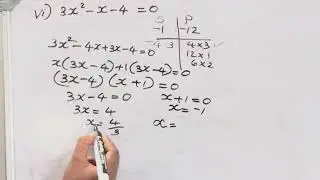 vi) 3x² - x - 4 = 0
S P
-1 -12
-4 3 4 x 3 ✓
12 x 1
6 x 2
3x² - 4x + 3x - 4 = 0
x(3x - 4) + 1(3x - 4) = 0
(3x - 4) (x + 1) = 0
3x - 4 = 0 x + 1 = 0
3x = 4 x = -1
x = 4/3 x =